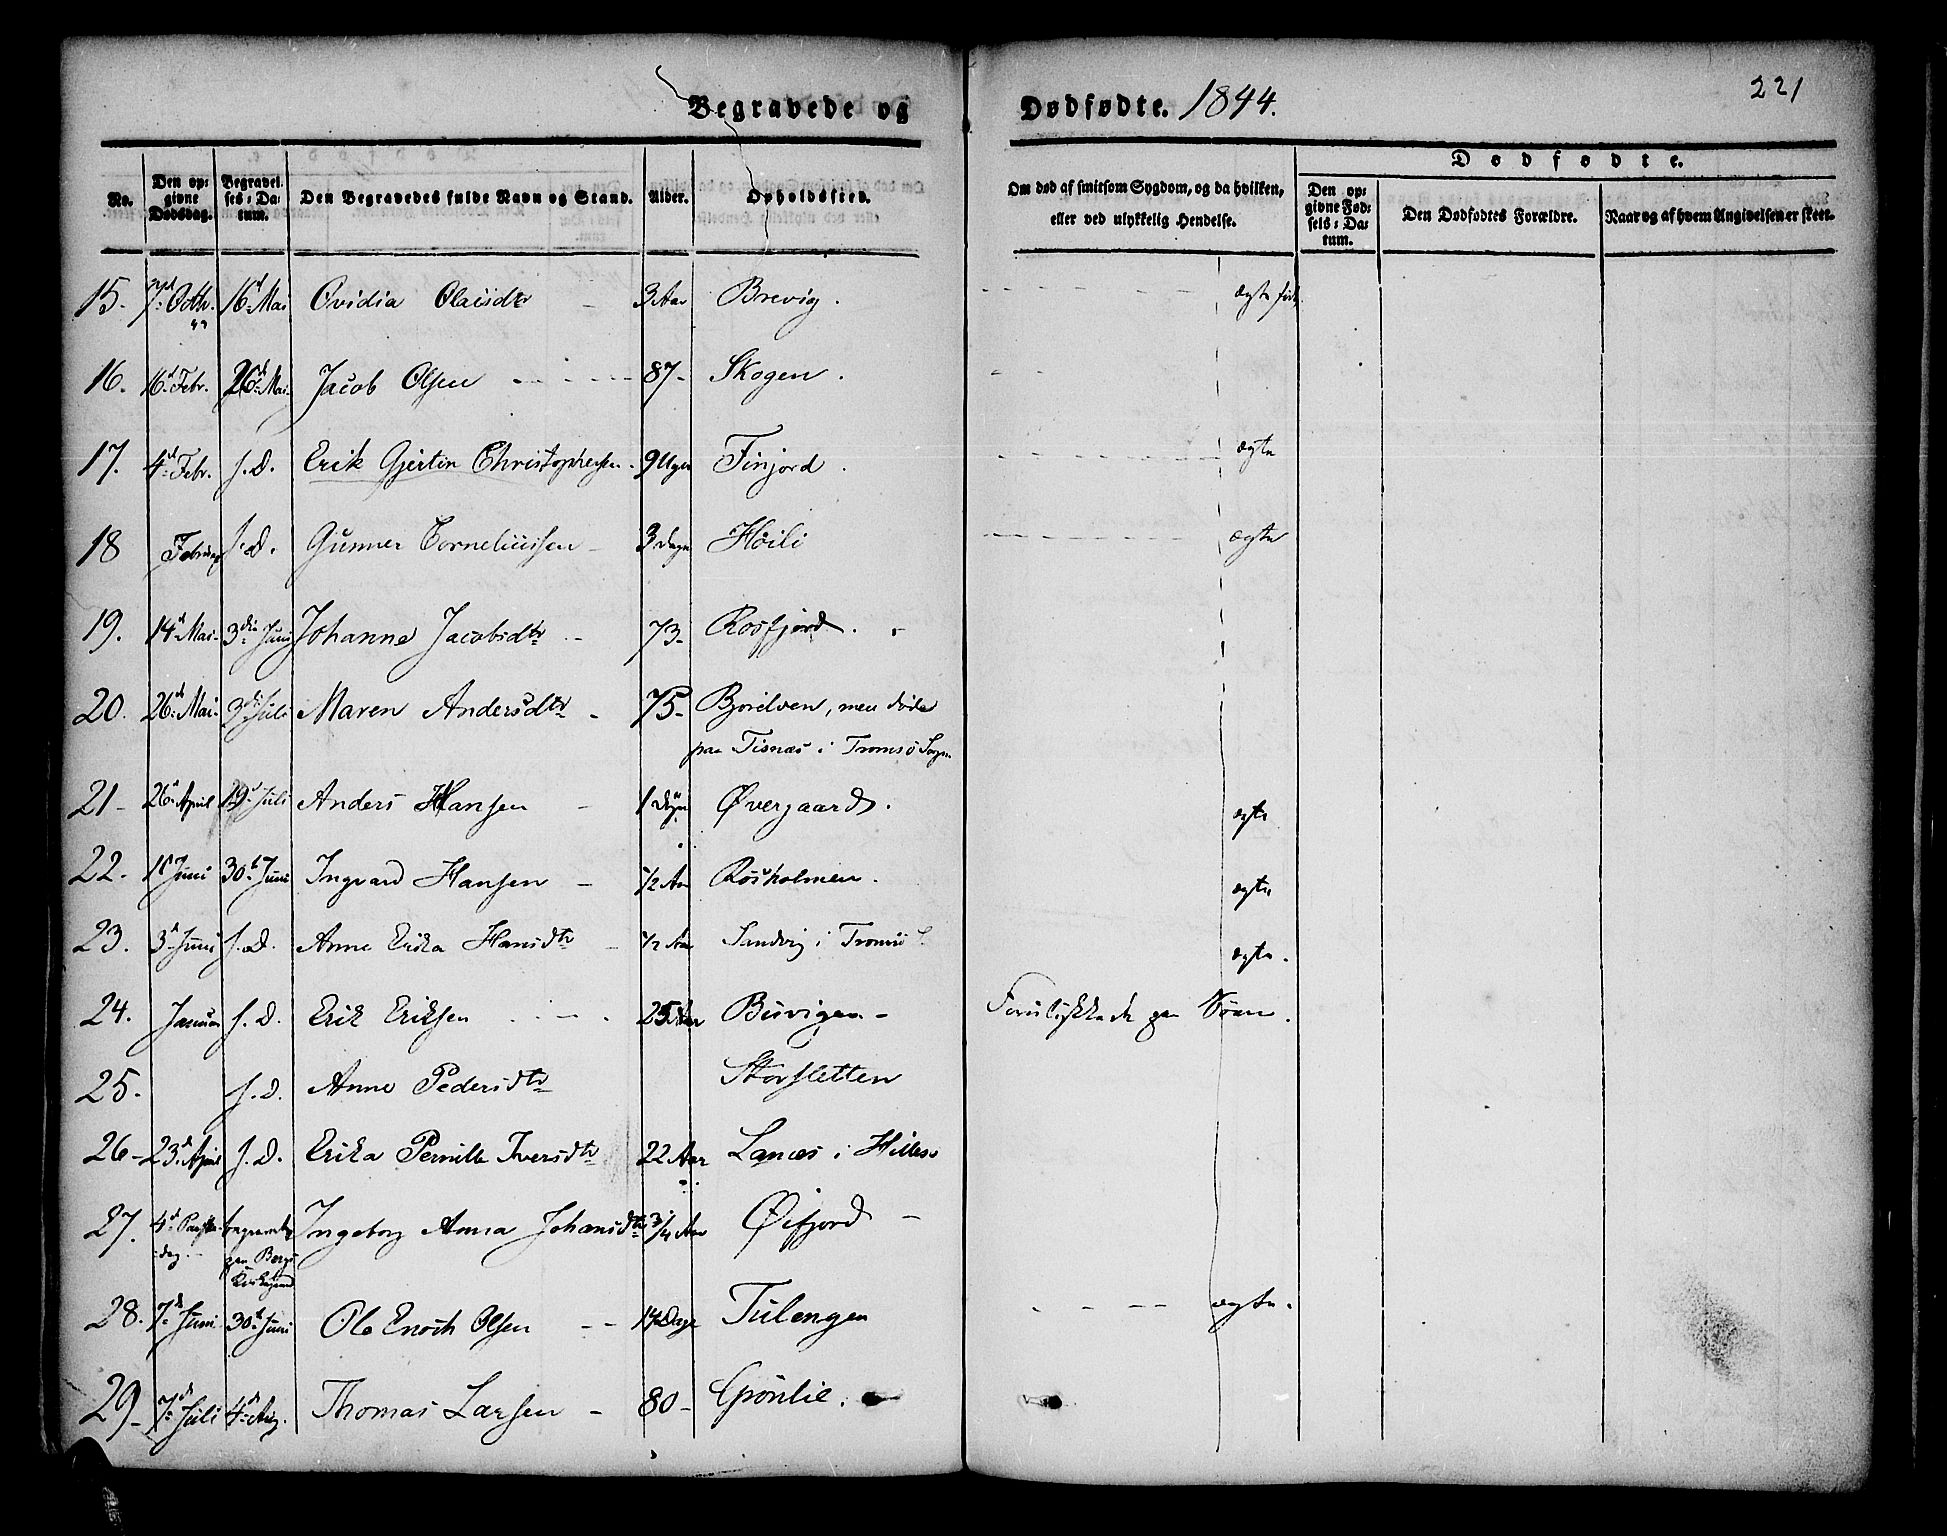 Begravede og Dødfødte. 1844. 221
No. Den op: givne Dødsdag. Begravel: ses: Da: tum. Den Begravedes fulde Navn og Stand. Alder. Opholdssted. Om død af smitsom Sygdom, og da hvilken, eller ved ulykkelig Hendelse. Dødfødte. Den op: givne Fød: sels: Da: tum. Den Dødfødtes Forældre. Naar og af hvem Angivelsen er skeet.
15. 7de Octbr. 16d Mai Ovidia Olaisdtr 3 Aar Brevig. ægte født
16. 16d Febr. 26d Mai Jacob Olsen 87 Skogen.
17. 4d Febr. s. D. Erik Gjertin Christophersen 9 Uger Finjord. ægte
18 Februar s. D. Gunner Corneliussen 3 Dage Höili ægte
19. 14d Mai 3die Juni Johanne Jacobsdtr 73 Rosfjord.
20. 26d Mai 3die Juli Maren Andersdtr 75 Bjorelven, men døde
paa Tisnæs i Tromsö Sogn
21 26d April 19d Juli Anders Hansen 1 Døgn Øvergaard. ægte
22. 1st Juni 30te Juni Ingvard Hansen 1/2 Aar Rösholmen. ægte
23. 3d Juni s. D. Anne Erika Hansdtr 1/2 Aar Sandvig i Tromsö S. ægte.
24. Januar s. D. Erik Eriksen 25 Aar Buvigen Forulykkede paa Söen.
25. s. D. Anne Pedersdtr Storsletten
26 23d April s. D. Erika Pernille Iversdtr 22 Aar Lanæs i Hillesö
27. 4d Paaske dag. begravet paa Bergs Kirkegaard Ingeborg Anna Johansdtr 3/4 Aar Öifjord
28. 7d Juni 30te Juni Ole Enoch Olsen 14 Dage Tulengen ægte.
29 7d Juli 4d Aug. Thomas Larsen 80 Grönlie.